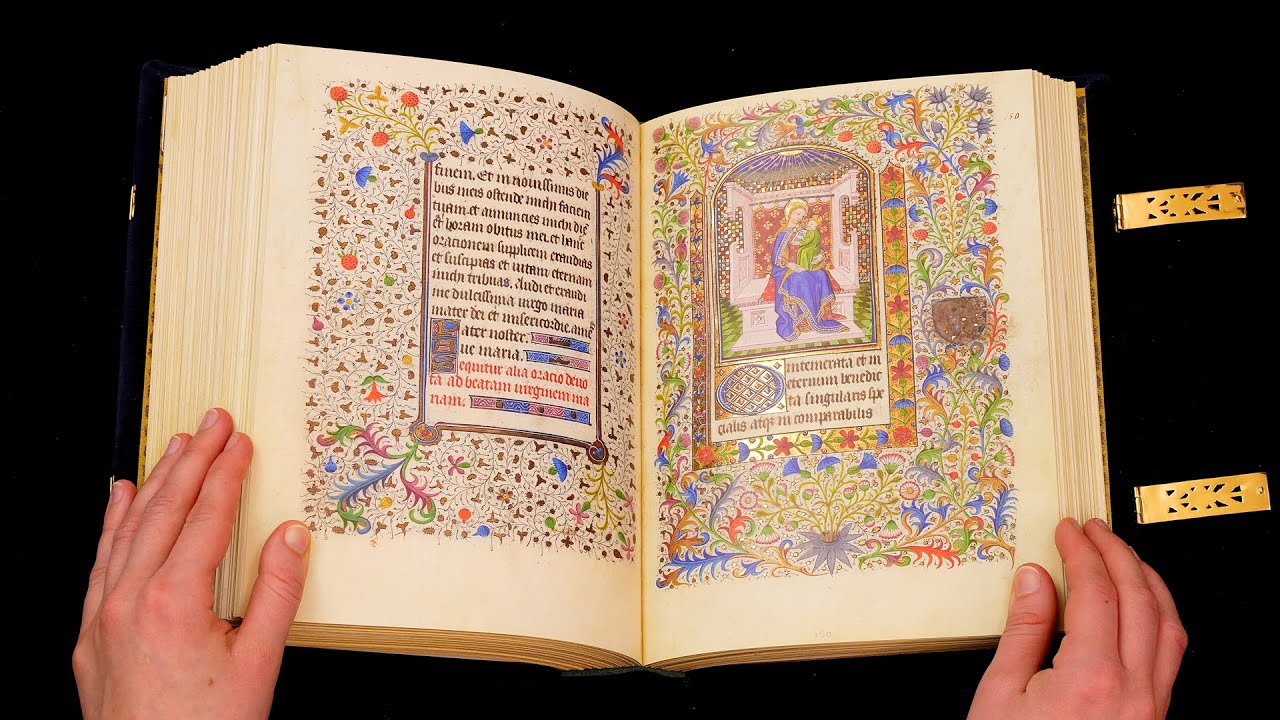 finem. Et in nouissimis die
bus meis ostende michi faciem
tuam et annuncies michi diē
et horam obitus mei. et hanc
orationem supplicem exaudias
et suscipias et uitam eternam
michi tribuas. Audi et exaudi
me dulcissima uirgo maria
mater dei et misericordie. amē
Pater noster.
Aue maria.
Sequitur alia oracio deuo
ta ad beatam uirginem ma
riam.
150
O intemerata et in
eternum benedic
ta singularis spe
cialis atqꝫ incomparabilis
150